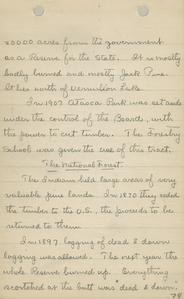 20000 acres from the government
as a Reserve for the State. It is mostly
badly burned and mostly Jack Pine.
It lies north of Vermilion Lake.
In 1907 Itasca Park was set aside
under the control of the Boards, with
the power to cut timber. The Forestry
School was given the use of this tract.
The National Forest.
The Indians held large areas of very
valuable pine lands. In 1870 they ceded
the timber to the U.S., the proceeds to be
returned to them.
In 1897 logging of dead & down
logging was allowed. The next year the
whole Reserve burned up. Everything
scorched at the butt was "dead & down,"